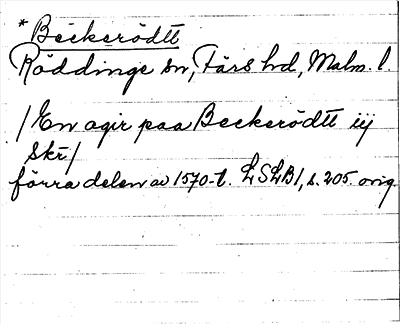 * Beckerödtt
Röddinge sn, Färs hd, Malm. l.
/En agir paa Beckerödtt iij
Skr/
förra delen av 1570-t. LSLB1, s. 205. orig.